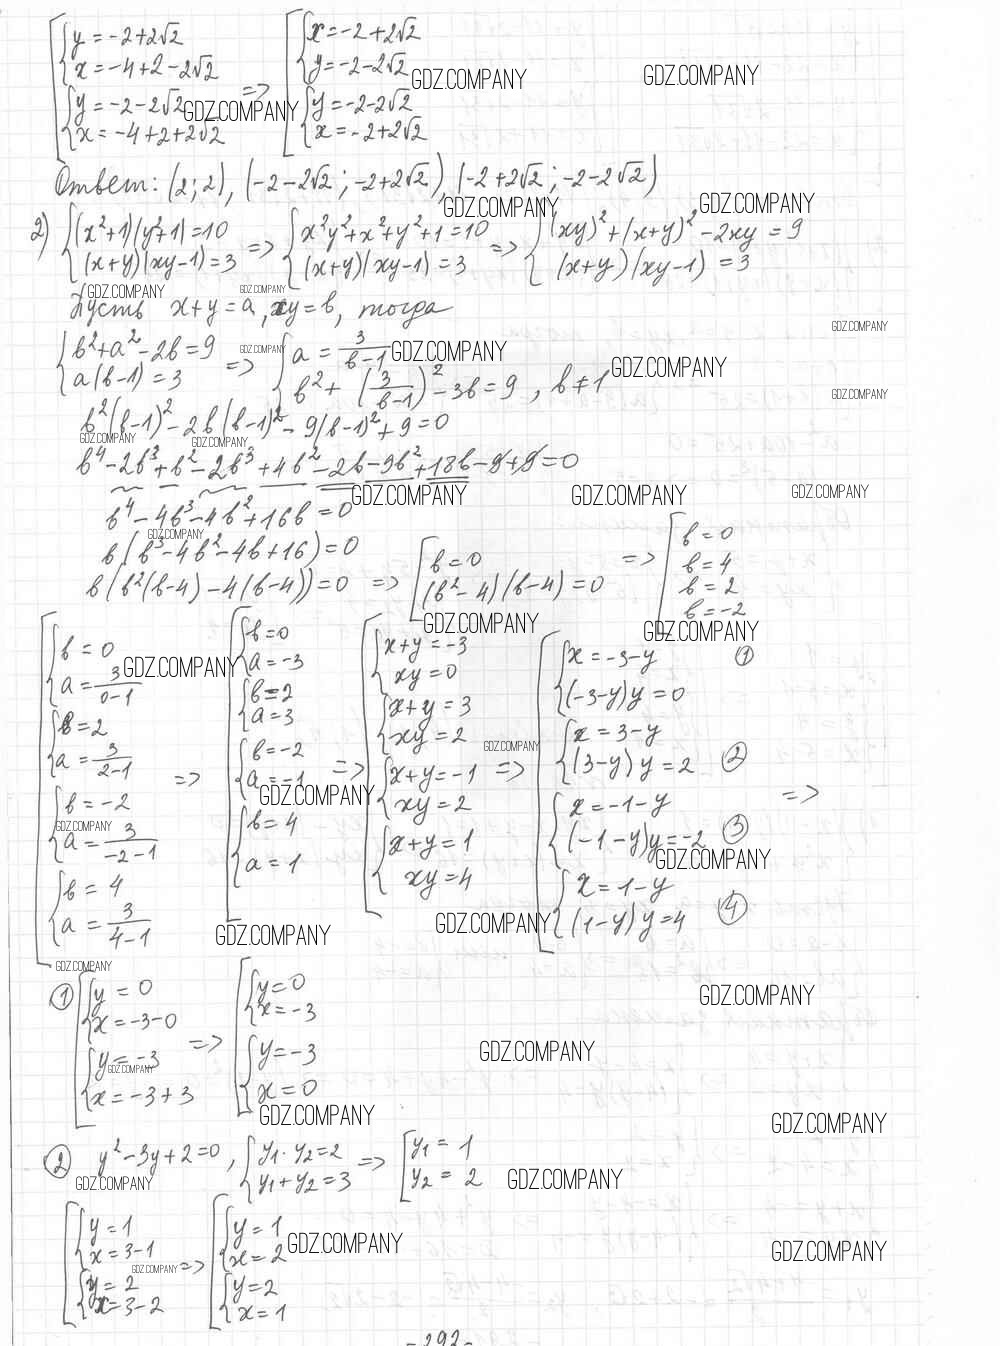 y = -2+2√2
x = -4+2-2√2
y = -2-2√2
x = -4+2+2√2
=>
x = -2+2√2
y = -2-2√2
y = -2-2√2
x = -2+2√2
GDZ.COMPANY
GDZ.COMPANY
GDZ.COMPANY
Ответ: (2; 2), (-2-2√2; -2+2√2), (-2+2√2; -2-2√2)
GDZ.COMPANY
GDZ.COMPANY
2) { (x²+1)(y²+1)=10 => { x²y²+x²+y²+1=10 => { (xy)²+(x+y)²-2xy=9
(x+y)(xy-1)=3 (x+y)(xy-1)=3 (x+y)(xy-1)=3
GDZ.COMPANY
GDZ.COMPANY
Пусть x+y=a, xy=b, тогда
GDZ.COMPANY
{ b²+a²-2b=9 => { a = 3/(b-1)
a(b-1)=3 b²+(3/(b-1))²-3b=9, b≠1
GDZ.COMPANY
GDZ.COMPANY
GDZ.COMPANY
GDZ.COMPANY
b²(b-1)²-2b(b-1)²-9(b-1)²+9=0
GDZ.COMPANY
GDZ.COMPANY
b⁴-2b³+b²-2b³+4b²-2b-9b²+18b-9+9=0
GDZ.COMPANY
GDZ.COMPANY
GDZ.COMPANY
b⁴-4b³-4b²+16b=0
GDZ.COMPANY
b(b³-4b²-4b+16)=0
b(b²(b-4)-4(b-4))=0 => [ b=0
(b²-4)(b-4)=0
=> [ b=0
b=4
b=2
b=-2
GDZ.COMPANY
GDZ.COMPANY
GDZ.COMPANY
b=0
a = 3/(0-1)
b=2
a = 3/(2-1)
b=-2
a = 3/(-2-1)
b=4
a = 3/(4-1)
=>
b=0
a=-3
b=2
a=3
b=-2
a=-1
b=4
a=1
=>
x+y=-3
xy=0
x+y=3
xy=2
x+y=-1
xy=2
x+y=1
xy=4
=>
x=-3-y
(-3-y)y=0 ①
x=3-y
(3-y)y=2 ②
x=-1-y
(-1-y)y=-2 ③
x=1-y
(1-y)y=4 ④
=>
GDZ.COMPANY
GDZ.COMPANY
GDZ.COMPANY
GDZ.COMPANY
GDZ.COMPANY
GDZ.COMPANY
GDZ.COMPANY
① y=0
x=-3-0
y=-3
x=-3+3
=>
y=0
x=-3
y=-3
x=0
GDZ.COMPANY
GDZ.COMPANY
GDZ.COMPANY
GDZ.COMPANY
GDZ.COMPANY
② y²-3y+2=0, { y₁·y₂=2 => [ y₁=1
y₁+y₂=3 y₂=2
GDZ.COMPANY
GDZ.COMPANY
y=1
x=3-1
y=2
x=3-2
=>
y=1
x=2
y=2
x=1
GDZ.COMPANY
GDZ.COMPANY
GDZ.COMPANY
-292-